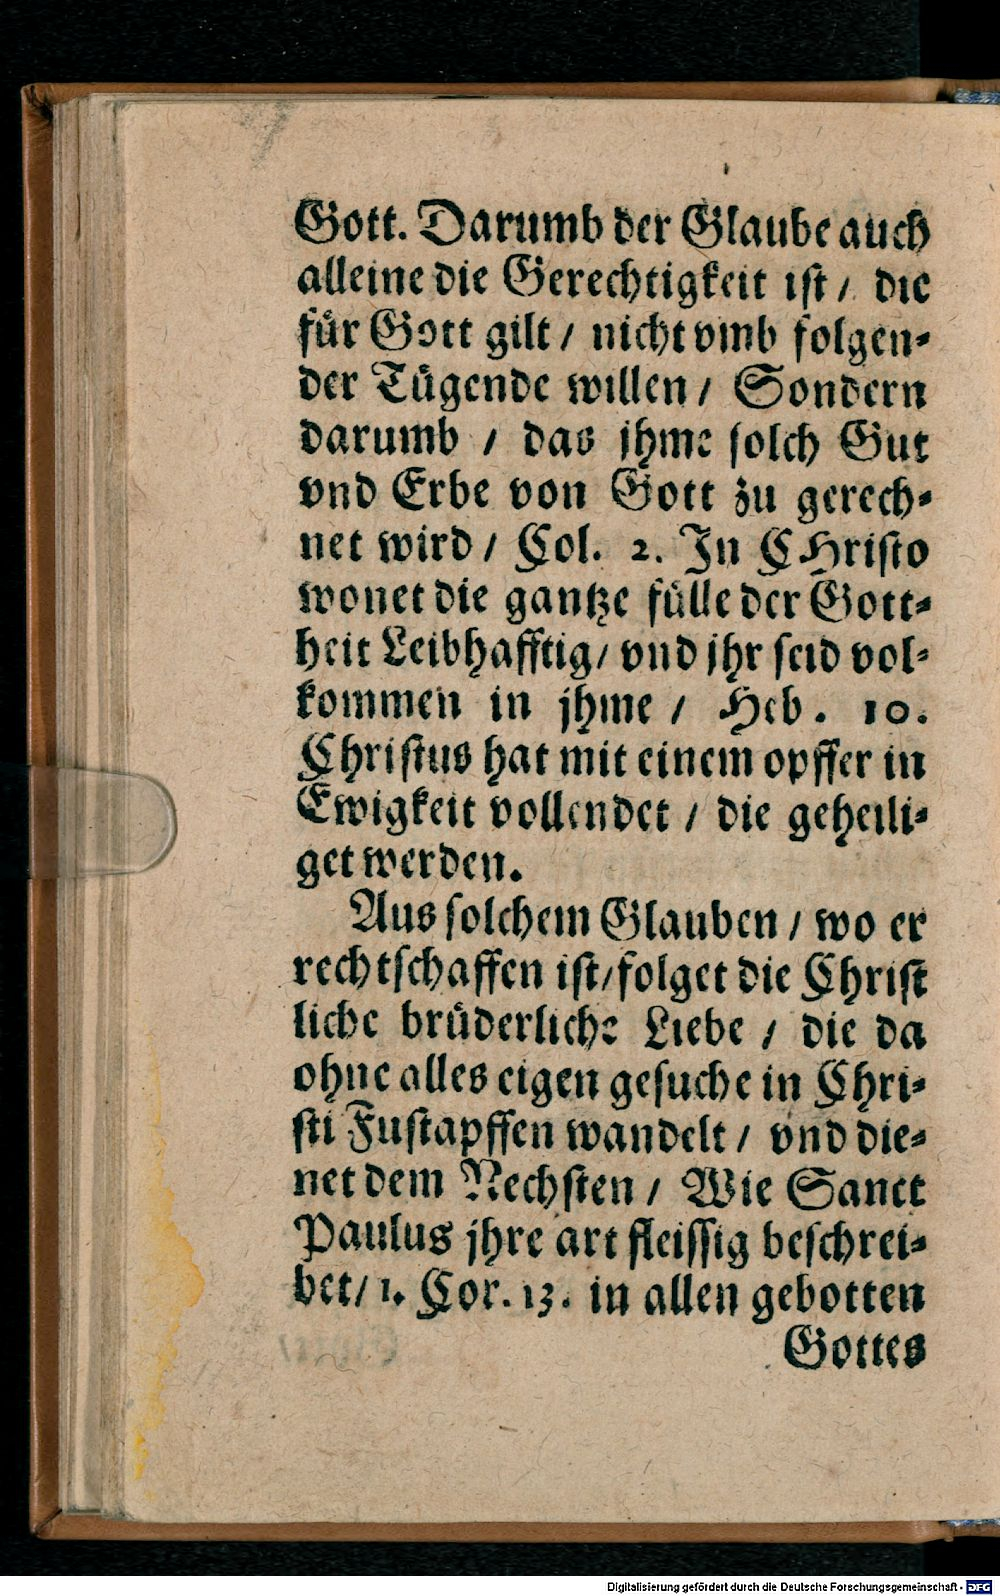 Gott. Darumb der Glaube auch
alleine die Gerechtigkeit ist / die
für Gott gilt / nicht vmb folgen-
der Tügende willen / Sondern
darumb / das jhme solch Gut
vnd Erbe von Gott zu gerech-
net wird / Col. 2. In CHristo
wonet die gantze fülle der Gott-
heit Leibhafftig / vnd jhr seid vol-
kommen in jhme / Heb. 10.
Christus hat mit einem opffer in
Ewigkeit vollendet / die geheili-
get werden.
Aus solchem Glauben / wo er
rechtschaffen ist / folget die Christ
liche brüderliche Liebe / die da
ohne alles eigen gesuche in Chri-
sti Fustapffen wandelt / vnd die-
net dem Nechsten / Wie Sanct
Paulus jhre art fleissig beschrei-
bet / 1. Cor. 13. in allen gebotten
Gottes
Digitalisierung gefördert durch die Deutsche Forschungsgemeinschaft - DFG